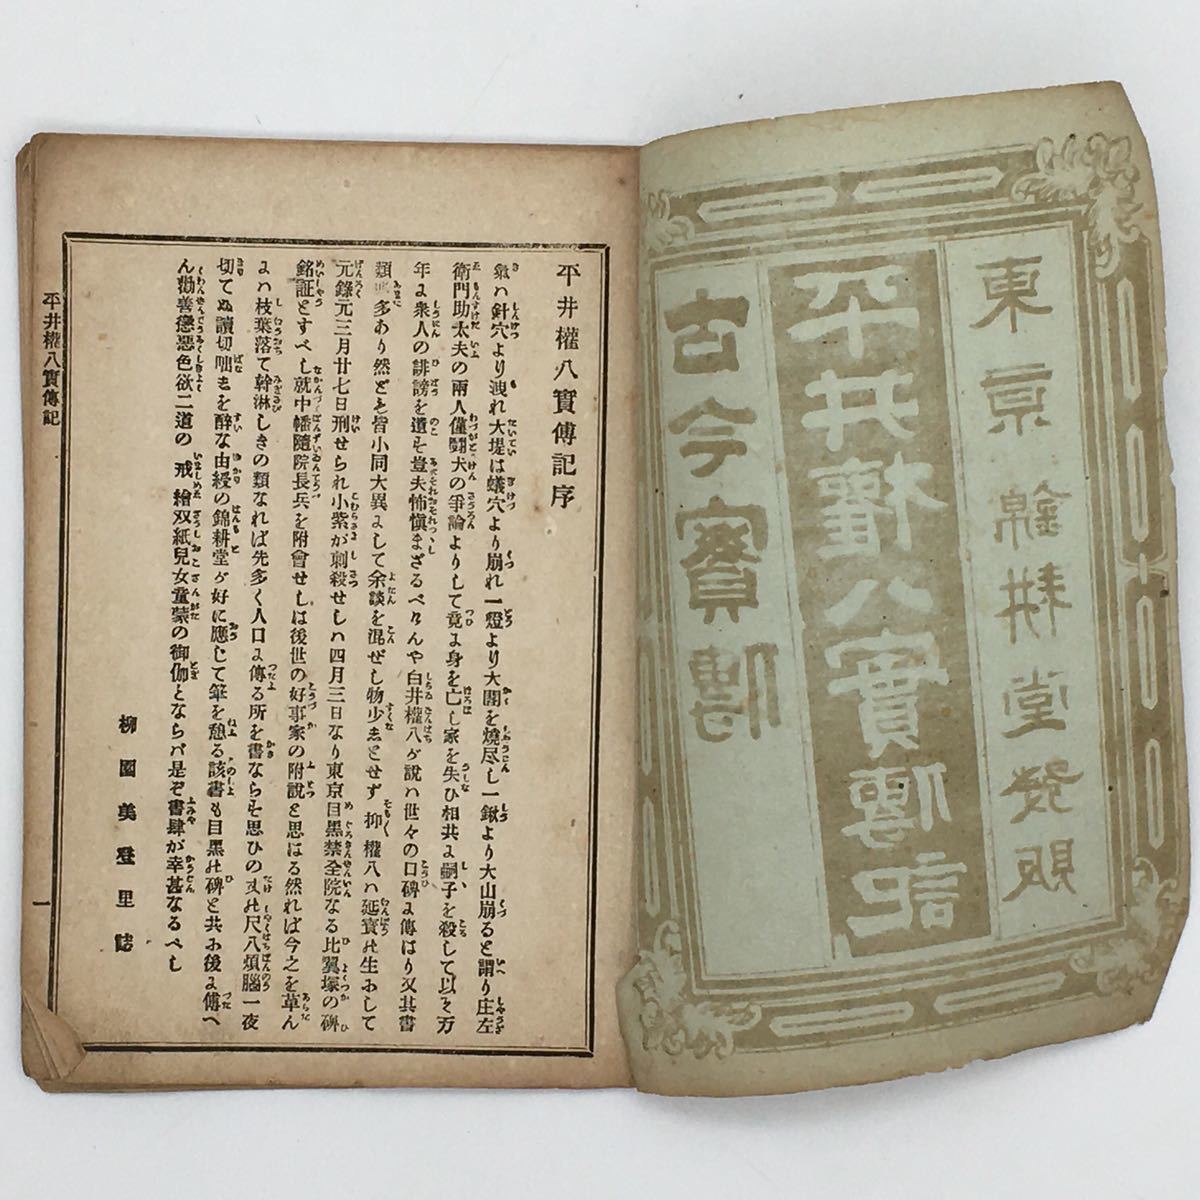 東京錦耕堂発兌
平井權八實傳記
古今實傳
平井權八實傳記序
氣ハ針穴より洩れ大堤は蟻穴より崩れ一燈より大閣を燒尽し一鍬より大山崩ると謂り庄左
衛門助太夫の兩人僅鬪犬の爭論よりして竟に身を亡し家を失ひ相共に嗣子を殺して以て万
年に衆人の誹謗を遺す豈夫怖愼まざるべけんや白井權八が説ハ世々の口碑に傳はり又其書
類多あり然ども皆小同大異にして余談を混ぜし物少ゑとせず抑權八ハ延寶の生にして
元錄元三月廿七日刑せられ小紫が刺殺せしハ四月三日なり東京目黑禁全院なる比翼塚の碑
銘証とすべし就中幡隨院長兵を附會せしは後世の好事家の附説と思はる然れば今之を草ん
にハ枝葉落て幹淋しきの類なれば先多く人口に傳る所を書ならそ思ひの丈の尺八煩腦一夜
切てぬ讀切咄しを醉な由縁の錦耕堂が好に應じて筆を憩る該書も目黑の碑と共に後に傳へ
ん勸善懲惡色欲二道の戒繪双紙兒女童蒙の御伽とならバ是ぞ書肆が幸甚なるべし
柳園美登里誌
平井權八實傳記
一